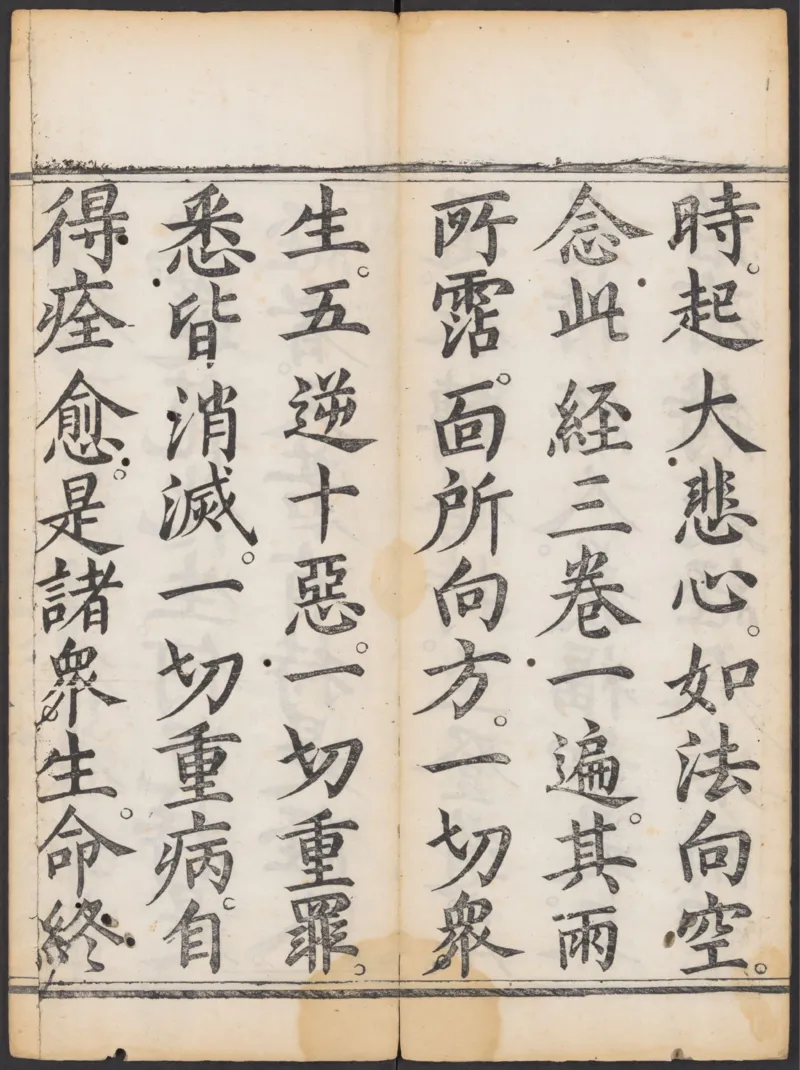 時。起大悲心。如法向空。
念此経三卷一遍。其雨
所霑。面所向方。一切衆
生。五逆十惡。一切重罪。
悉皆消滅。一切重病。自
得痊愈。是諸衆生。命終